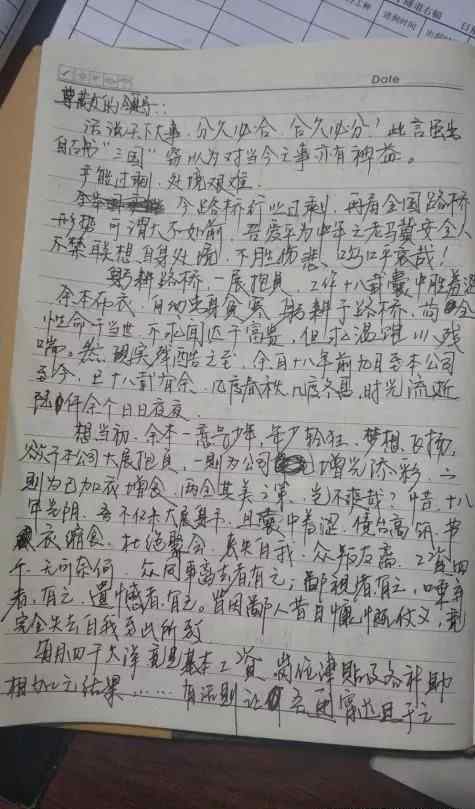 Date
尊敬的领导:
话说天下大事,分久必合,合久必分!此言虽出
自古书"三国"窃以为对当今之事亦有裨益。
产能过剩,处境艰难.
今路桥行业过剩,再看全国路桥
形势可谓大不如前.吾爱乎为中年之老马冀安全人
不禁联想自身处境,不胜伤悲,呜呼哀哉!
躬耕路桥,一展抱负,工作十八载囊中羞涩
余本布衣,自幼出身贫寒,躬耕于路桥,苟全
性命于当世,不求闻达于富贵,但求温饱以残
喘。然,现实残酷之至,余自十八年前九月至本公司
至今,已十八载有余,几度春秋,几度冬夏,时光流逝
件余个日日夜夜.
想当初,余本一意气少年,年少轻狂,梦想飞扬,
欲于本公司大展抱负,一则为公司增光添彩,二
则为己加衣增食,两全其美之策,岂不爽哉?惜,十八
年光阴,吾不仅未大展其志,且囊中羞涩,债台高筑,节
衣缩食,杜绝聚会,丧失自我,众叛友离,工资四
千,无可奈何,众同事离去者有之;鄙视者有之,唾弃
者,有之,遗憾者,有之。皆因鄙人昔日慷慨仗义,竟
完全失去自我至此所致.
每月四千大洋竟是基本工资,岗位津贴及各种补助
相加之元结果……有活则让吾